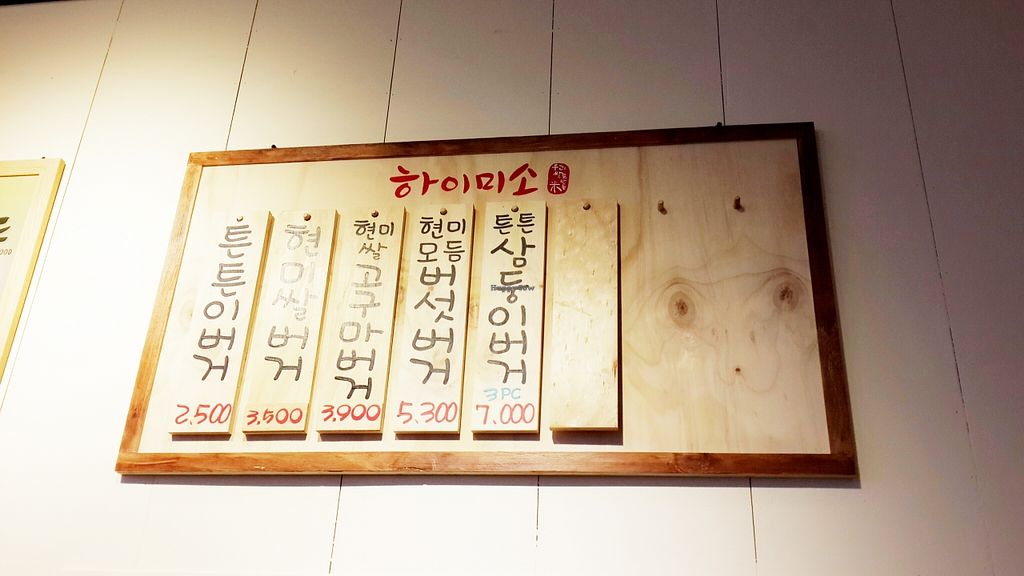 하이미소
튼튼이버거
2,500
현미쌀버거
3,500
현미
쌀
고구마버거
3,900
현미
모듬
버섯버거
5,300
튼튼
삼둥이버거
3PC
7,000
HappyCow